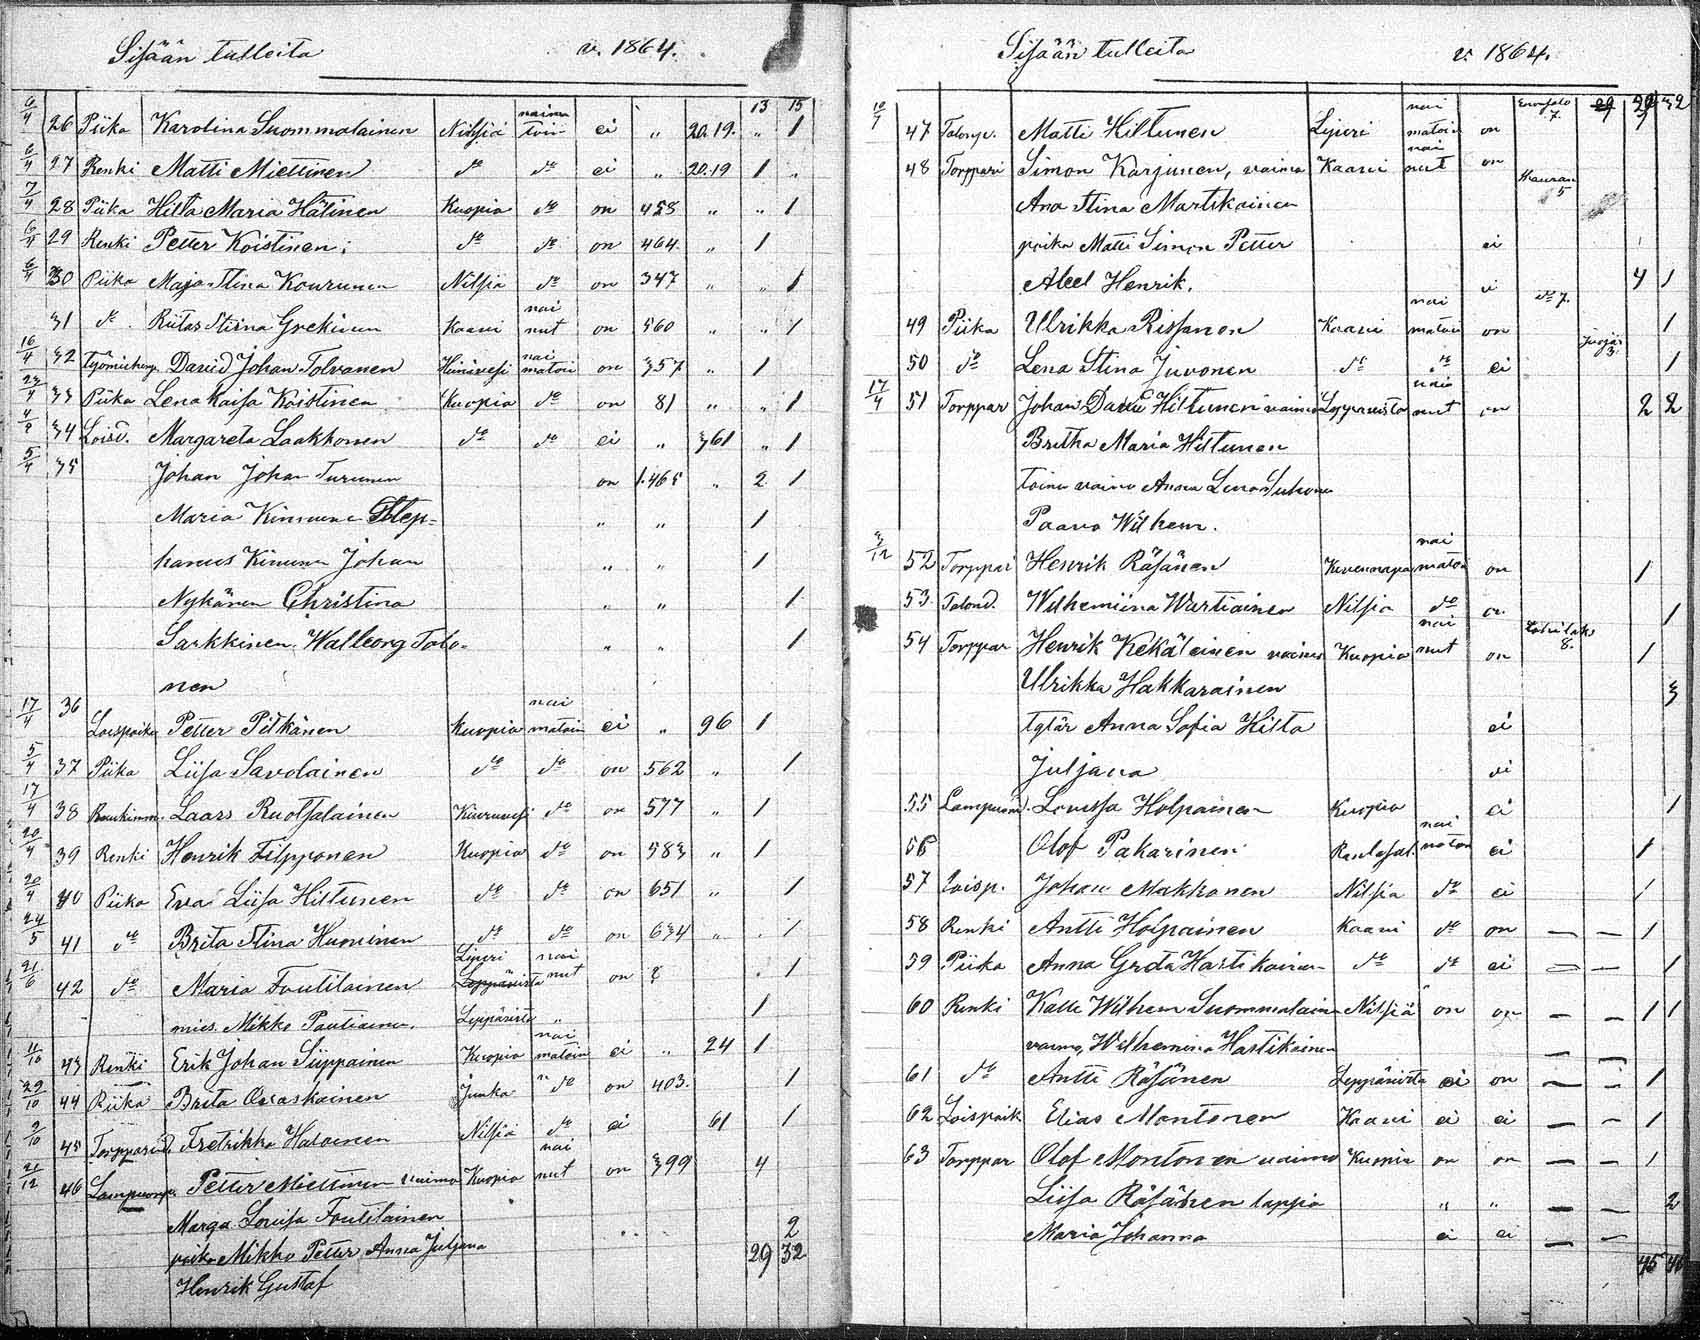 Sisään tulleita v. 1864.
13 15
6/4 26 Piika Karolina Suommalainen Nilsiä naimatoin ei " 20.19. " 1
6/4 27 Renki Matti Miettinen do do ei " 20.19 1 "
7/4 28 Piika Hilta Maria Hätinen Kuopio do on 458 " " 1
6/4 29 Renki Petter Koistinen do do on 464. " 1
6/4 30 Piika Maja Stina Kourunen Nilsiä do on 347 " " 1
31 do Riitas Stiina Grekinen Kaavi nainut on 560 " " 1
16/4 32 David Johan Tolvanen naimatoin on 357 " 1
23/4 33 Piika Lena Kaisa Koistinen Kuopio do on 81 " " 1
34 Loisd. Margareta Laakkonen do do ei " 361 " 1
5/4 35 Johan Johan Turunen on 1.465 " 2 1
Maria Kinnunen Step-
" " 1
hanus Kinunen Johan " " 1
Nykänen Christina " " 1
Sarkkinen, Wallborg Tolo- " " 1
nen
17/4 36 Loispoika Petter Pitkänen Kuopio naimatoin ei " 96 1
5/4 37 Piika Liisa Savolainen do do on 562 " 1
17/4 38 Laars Ruotsalainen Kiuruvesi do on 577 " 1
20/4 39 Renki Henrik Filpponen Kuopio do on 583 " 1
20/4 40 Piika Eva Liisa Hiltunen do do on 651 " 1
24/5 41 do Brita Stina Huminen do do on 634 " . 1
21/6 42 do Maria Foutilainen Liperi Leppävirta nainut on 2 . 1
mies. Mikko Pautiainen. Leppävirta " 1
11/10 43 Renki Erik Johan Siippainen Kuopio naimatoin ei " 24 1
29/10 44 Piika Brita Ovaskainen Juuka " do on 403. 1
2/10 45 Fretrikka Haloinen Nilsiä do ei 61 1
21/12 46 Lampuoti Petter Miettinen vaimo Kuopio nainut on 399 4
Marga Lovisa Foutilainen 2
poika Mikko Petter, Anna Juljana 29 32
Henrik Gustaf
Sisään tulleita v. 1864.
29 29 32
10/7 47 Talonp. Matti Hiltunen Liperi naimatoin on 7. 1
48 Torppari Simon Karjunen, vaimo Kaavi nainut on
Ana Stina Martikainen 5
poika Matti Simon Petter ei
Abel Henrik. ei do 7. 4 1
49 Piika Ulrikka Rissanen Kaavi naimatoin on 1
50 do Lena Stina Juvonen do do ei 3. 1
17/4 51 Torppar Johan David Hiltunen vaimo Leppävirta nainut on 2 2
Britha Maria Hiltunen
toinen vaimo Anna Lena
Paavo Wilhem.
3/12 52 Torppari Henrik Räsänen naimatoin on 1
53. Talond. Wilhemiina Wartiainen Nilsiä do on 1
54 Torppar Henrik Kekäleinen vaimo Kuopio nainut on 8. 1
Ulrikka Hakkarainen 3
tytär Anna Sofia Hilta ei
Juljana ei
55 Lampuod. Lovissa Holpainen Kuopio ei 1
56 Olof Pakarinen naimaton ei 1
57 Loisp. Johan Makkonen Nilsiä do ei 1
58 Renki Antti Holpainen Kaavi do on — — 1
59 Piika Anna Greta Hartikainen do do ei — — 1
60 Renki Kalle Wilhem Suommalainen Nilsiä on on — — 1 1
vaimo, Wilhemina Hartikainen — —
61 do Antti Räsänen Leppävirta ei on — — 1
62 Loispoik Elias Montonen Kaavi ei ei — — 1
63 Torppar Olof Montonen vaimo Kuopio on on — — 1
Liisa Räsänen lapsia " " — — 2
Maria Johanna ei ei — —
45 46